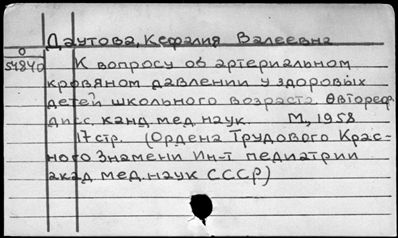 Даутова, Кефалия Валеевна
О
57840
К вопросу об артериальном
кровяном давлении у здоровых
детей школьного возраста. Автореф
дисс. канд. мед. наук. М, 1958
17 стр. (Ордена Трудового Крас-
ного Знамени Ин-т педиатрии
акад. мед. наук СССР)